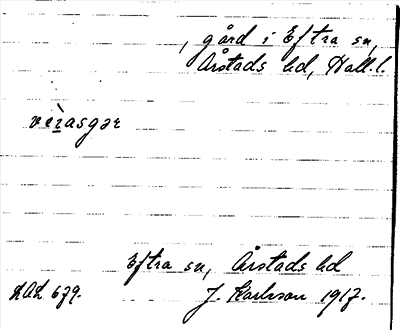 , gård i Eftra sn,
Årstads hd, Hall. l.
vèrasgər
Eftra sn, Årstads hd
LAL 679. J. Karlsson 1917.